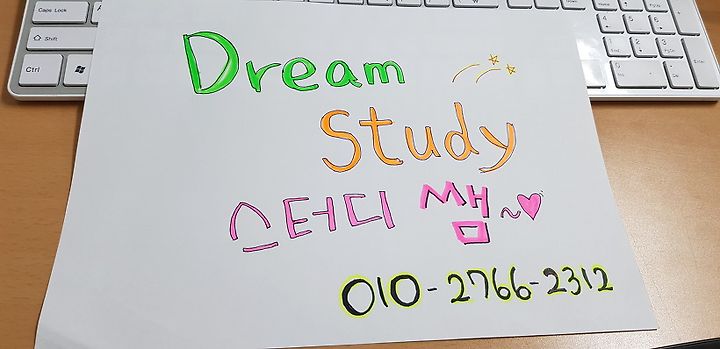 Dream
Study
스터디 쌤~♡
010-2766-2312
Caps Lock
Shift
Ctrl